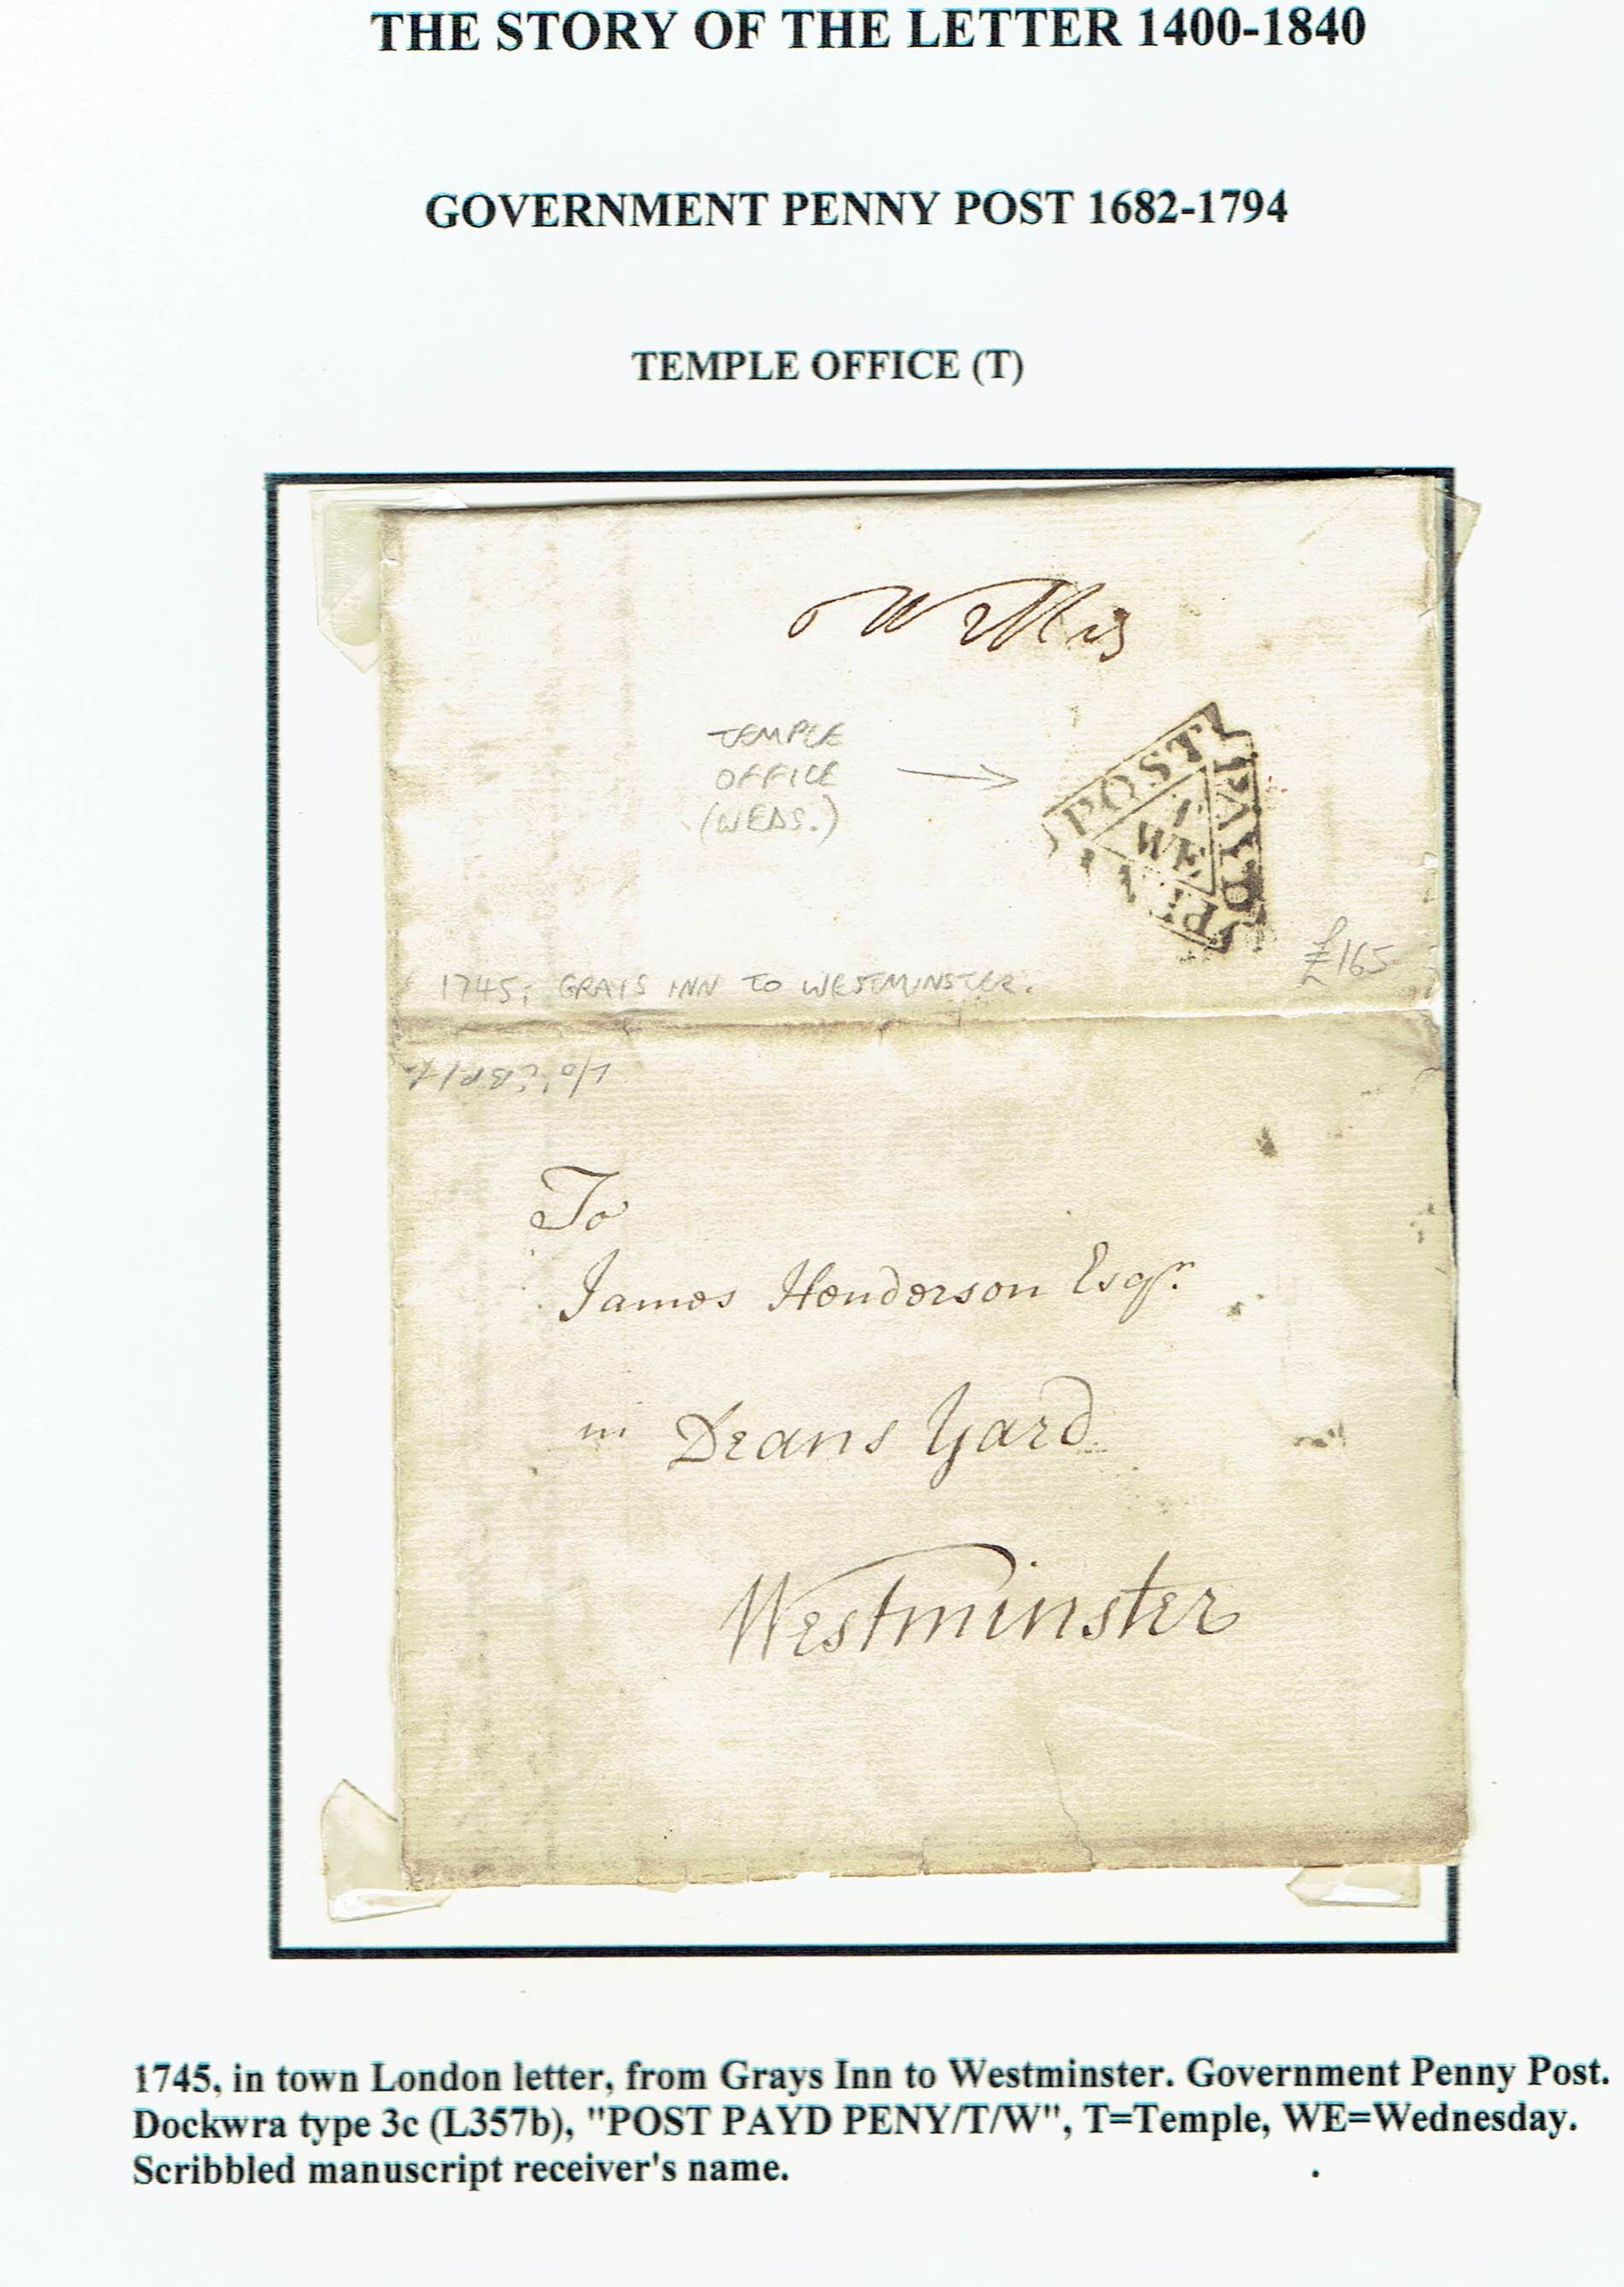 THE STORY OF THE LETTER 1400-1840
GOVERNMENT PENNY POST 1682-1794
TEMPLE OFFICE (T)
TEMPLE
OFFICE
(WEDS.)
POST
PAYD
T
WE
£165
1745; GRAYS INN TO WESTMINSTER.
To
James Henderson Esqr.
in Deans Yard
Westminster
1745, in town London letter, from Grays Inn to Westminster. Government Penny Post.
Dockwra type 3c (L357b), "POST PAYD PENY/T/W", T=Temple, WE=Wednesday.
Scribbled manuscript receiver's name.